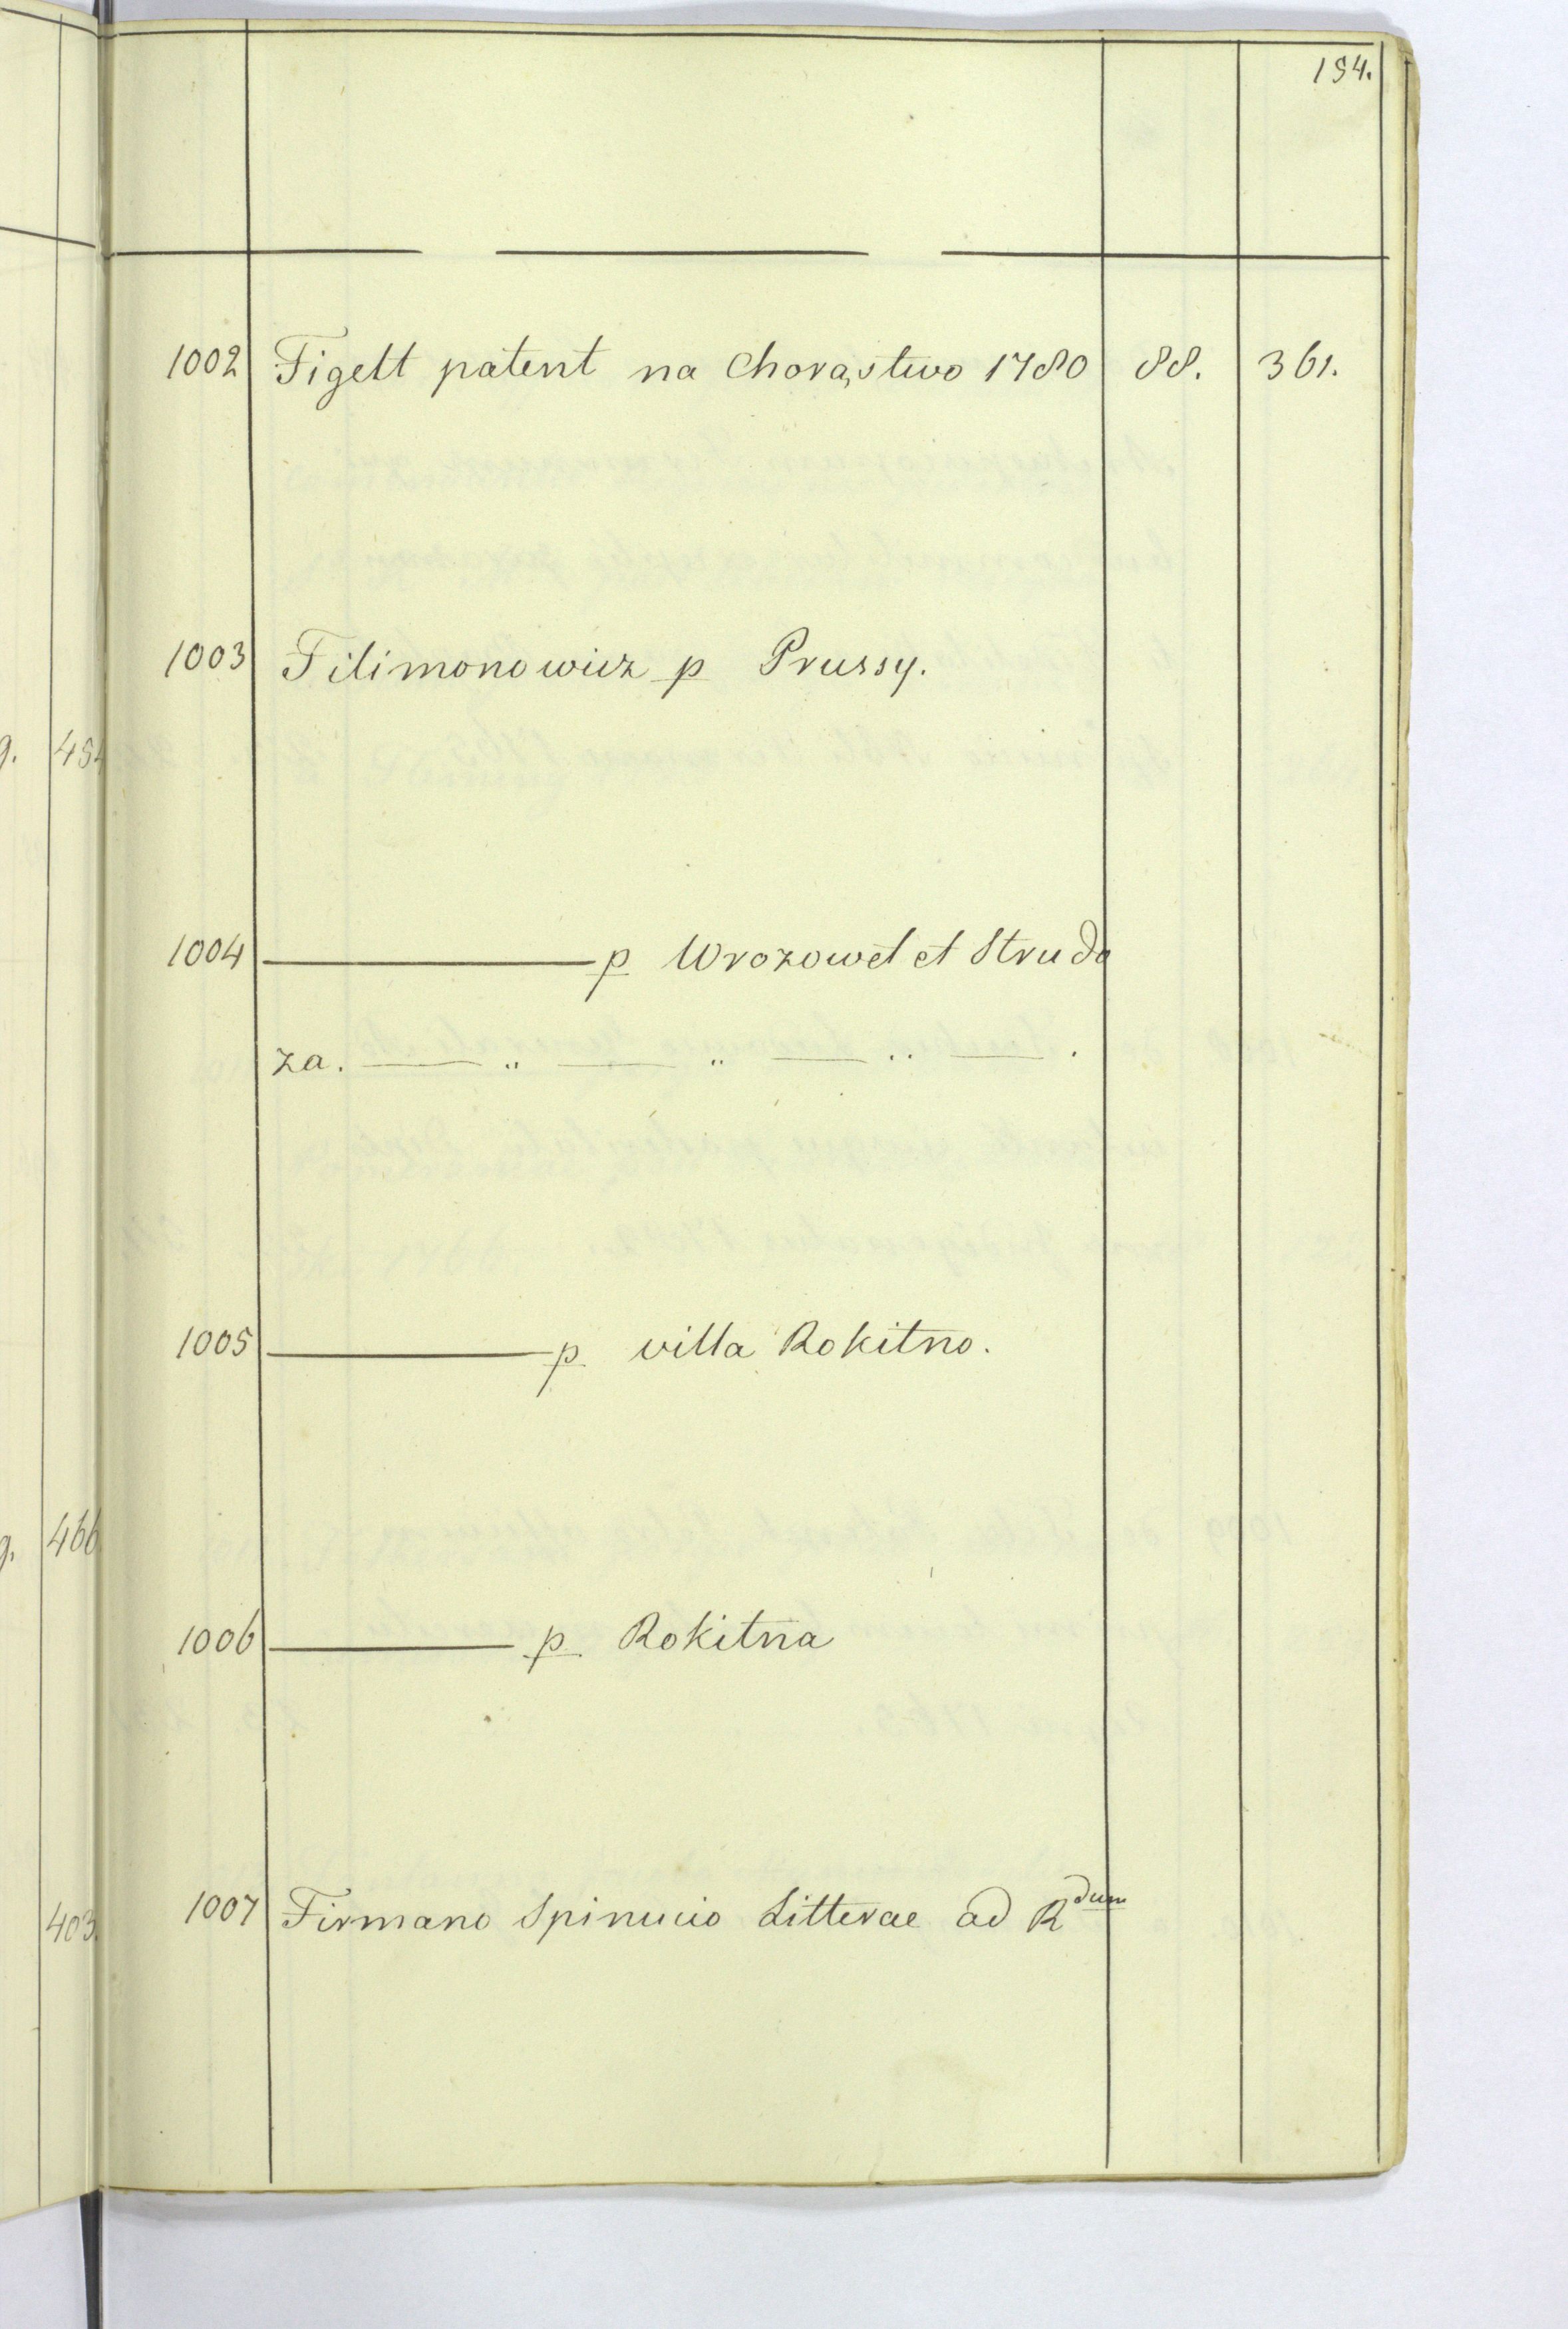 154.
1002 Figett patent na Chorąstwo 1780 88. 361.
1003 Filimonowicz p Prussy.
1004 ——— p Wrozowet et Strudo
za. — „ — „ — „ — .
1005 ——— p villa Rokitno.
1006 ——— p Rokitna
1007 Firmano Spinucio Litterae ad Rdum
g. 454
g. 466
403.